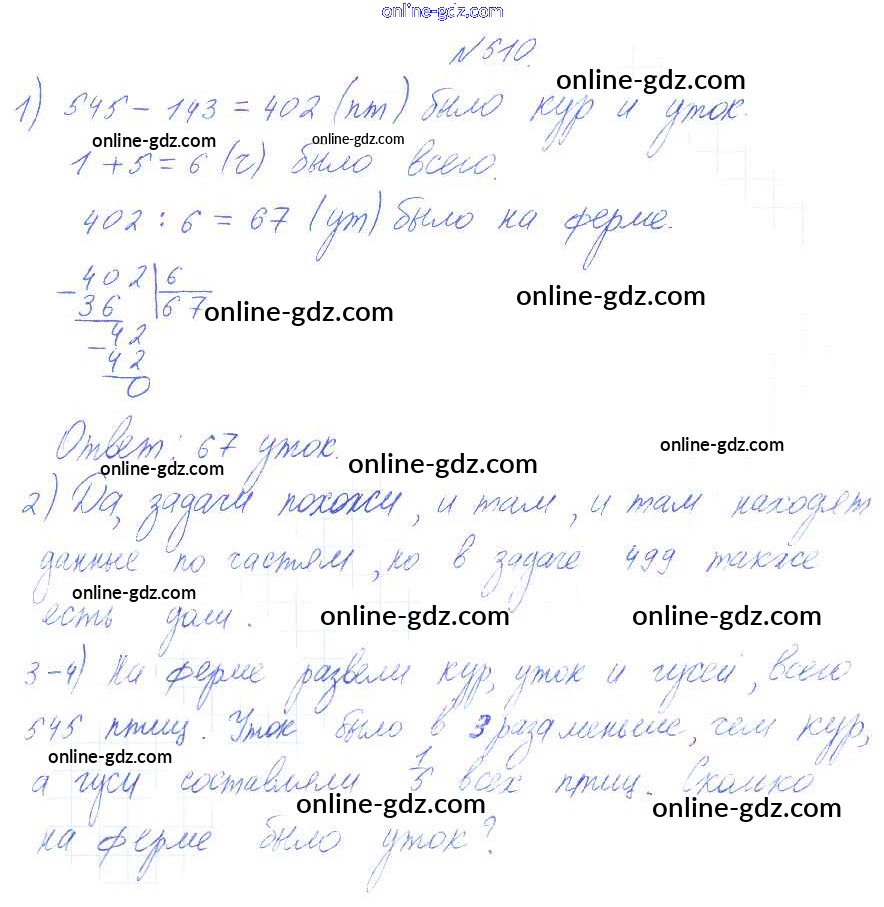 online-gdz.com
№510.
online-gdz.com
1) 545 - 143 = 402 (пт) было кур и уток.
online-gdz.com online-gdz.com
1 + 5 = 6 (ч) было всего.
402 : 6 = 67 (ут) было на ферме.
- 402 | 6
36 | 67 online-gdz.com online-gdz.com
- 42
42
0
Ответ: 67 уток.
online-gdz.com online-gdz.com online-gdz.com
2) Да, задачи похожи, и там, и там находят
данные по частям, но в задаче 499 также
online-gdz.com
есть доли. online-gdz.com online-gdz.com
3-4) На ферме развели кур, уток и гусей, всего
545 птиц. Уток было в 3 раза меньше, чем кур,
online-gdz.com
а гуси составляли 1/5 всех птиц. Сколко
online-gdz.com online-gdz.com
на ферме было уток?